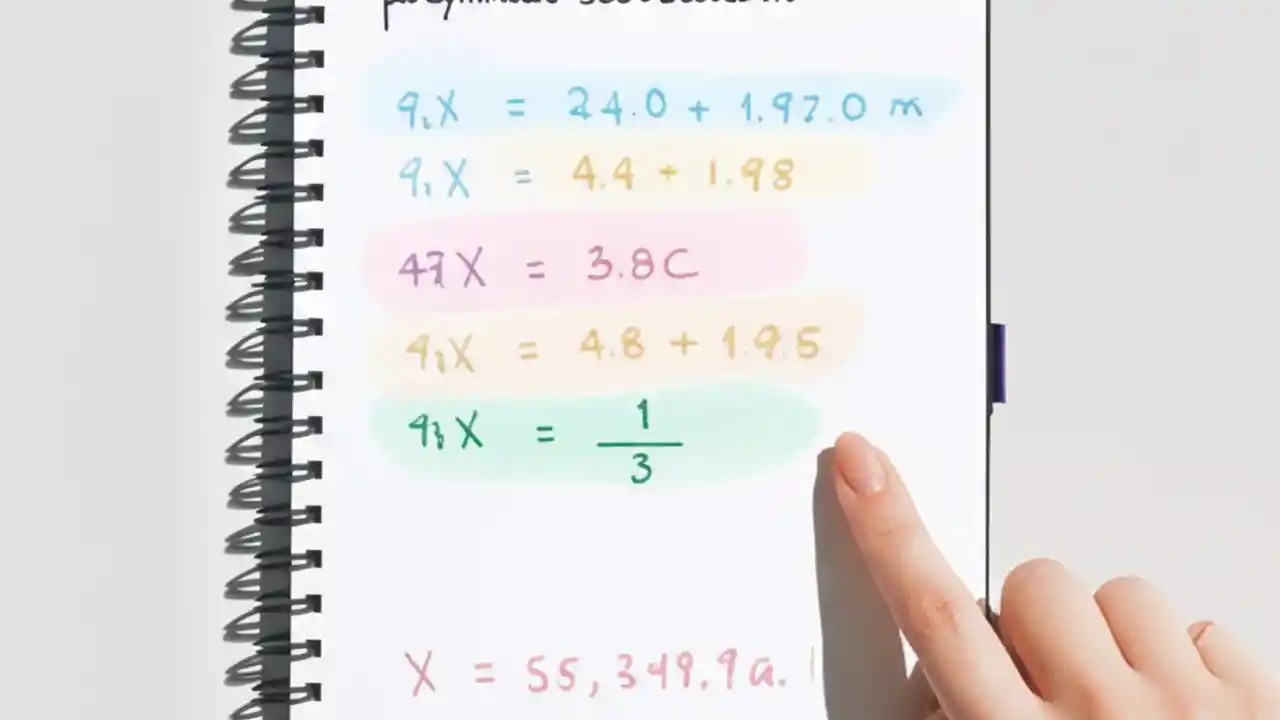 9,X = 24.0 + 1.97.0 m
9,X = 4.4 + 1.98
47X = 3.8C
9,X = 4.8 + 1.9.5
93X = 1/3
X = 55,349.9a.